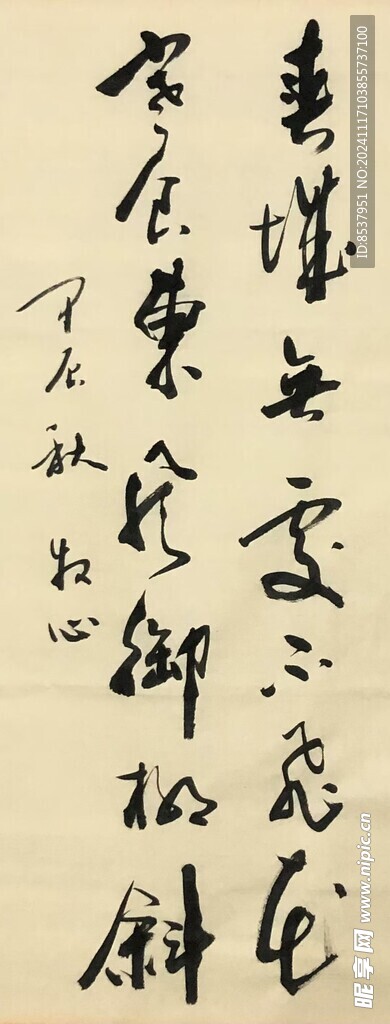 春城無處不飛花
寒食東風御柳斜
甲辰秋 牧心
ID:8537951 NO:20241117103855737100
昵享网 www.nipic.cn